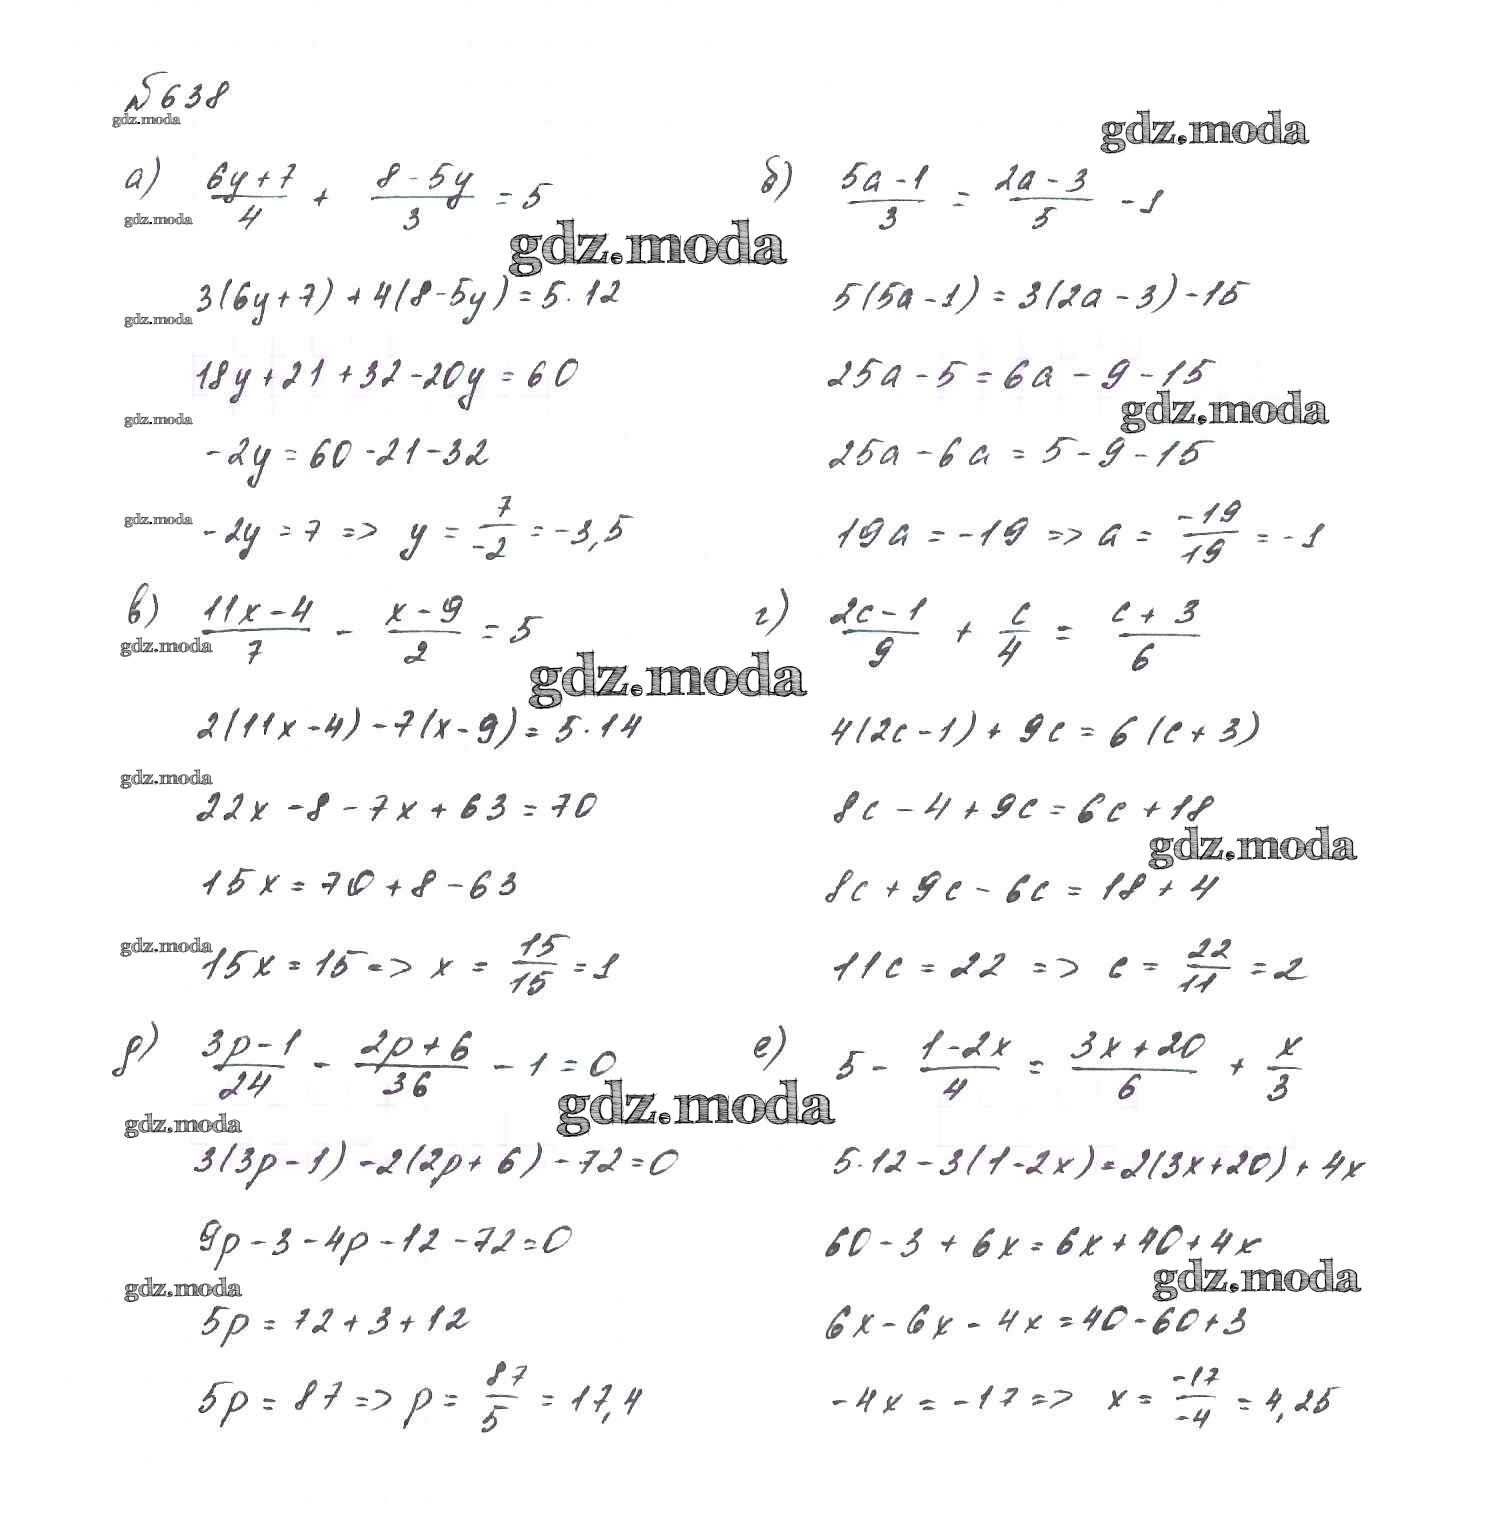 № 638
gdz.moda
gdz.moda
а) (6y+7)/4 + (8-5y)/3 = 5
gdz.moda
gdz.moda
3(6y+7)+4(8-5y)=5·12
gdz.moda
18y+21+32-20y=60
gdz.moda
-2y=60-21-32
gdz.moda
-2y=7 => y = 7/-2 = -3,5
б) (5a-1)/3 = (2a-3)/5 - 1
5(5a-1)=3(2a-3)-15
25a-5=6a-9-15
gdz.moda
25a-6a=5-9-15
19a=-19 => a = -19/19 = -1
в) (11x-4)/7 - (x-9)/2 = 5
gdz.moda
gdz.moda
2(11x-4)-7(x-9)=5·14
gdz.moda
22x-8-7x+63=70
15x=70+8-63
gdz.moda
15x=15 => x = 15/15 = 1
г) (2c-1)/9 + c/4 = (c+3)/6
4(2c-1)+9c=6(c+3)
8c-4+9c=6c+18
gdz.moda
8c+9c-6c=18+4
11c=22 => c = 22/11 = 2
д) (3p-1)/24 - (2p+6)/36 - 1 = 0
gdz.moda
gdz.moda
3(3p-1)-2(2p+6)-72=0
9p-3-4p-12-72=0
gdz.moda
5p=72+3+12
5p=87 => p = 87/5 = 17,4
е) 5 - (1-2x)/4 = (3x+20)/6 + x/3
5·12-3(1-2x)=2(3x+20)+4x
60-3+6x=6x+40+4x
gdz.moda
6x-6x-4x=40-60+3
-4x=-17 => x = -17/-4 = 4,25